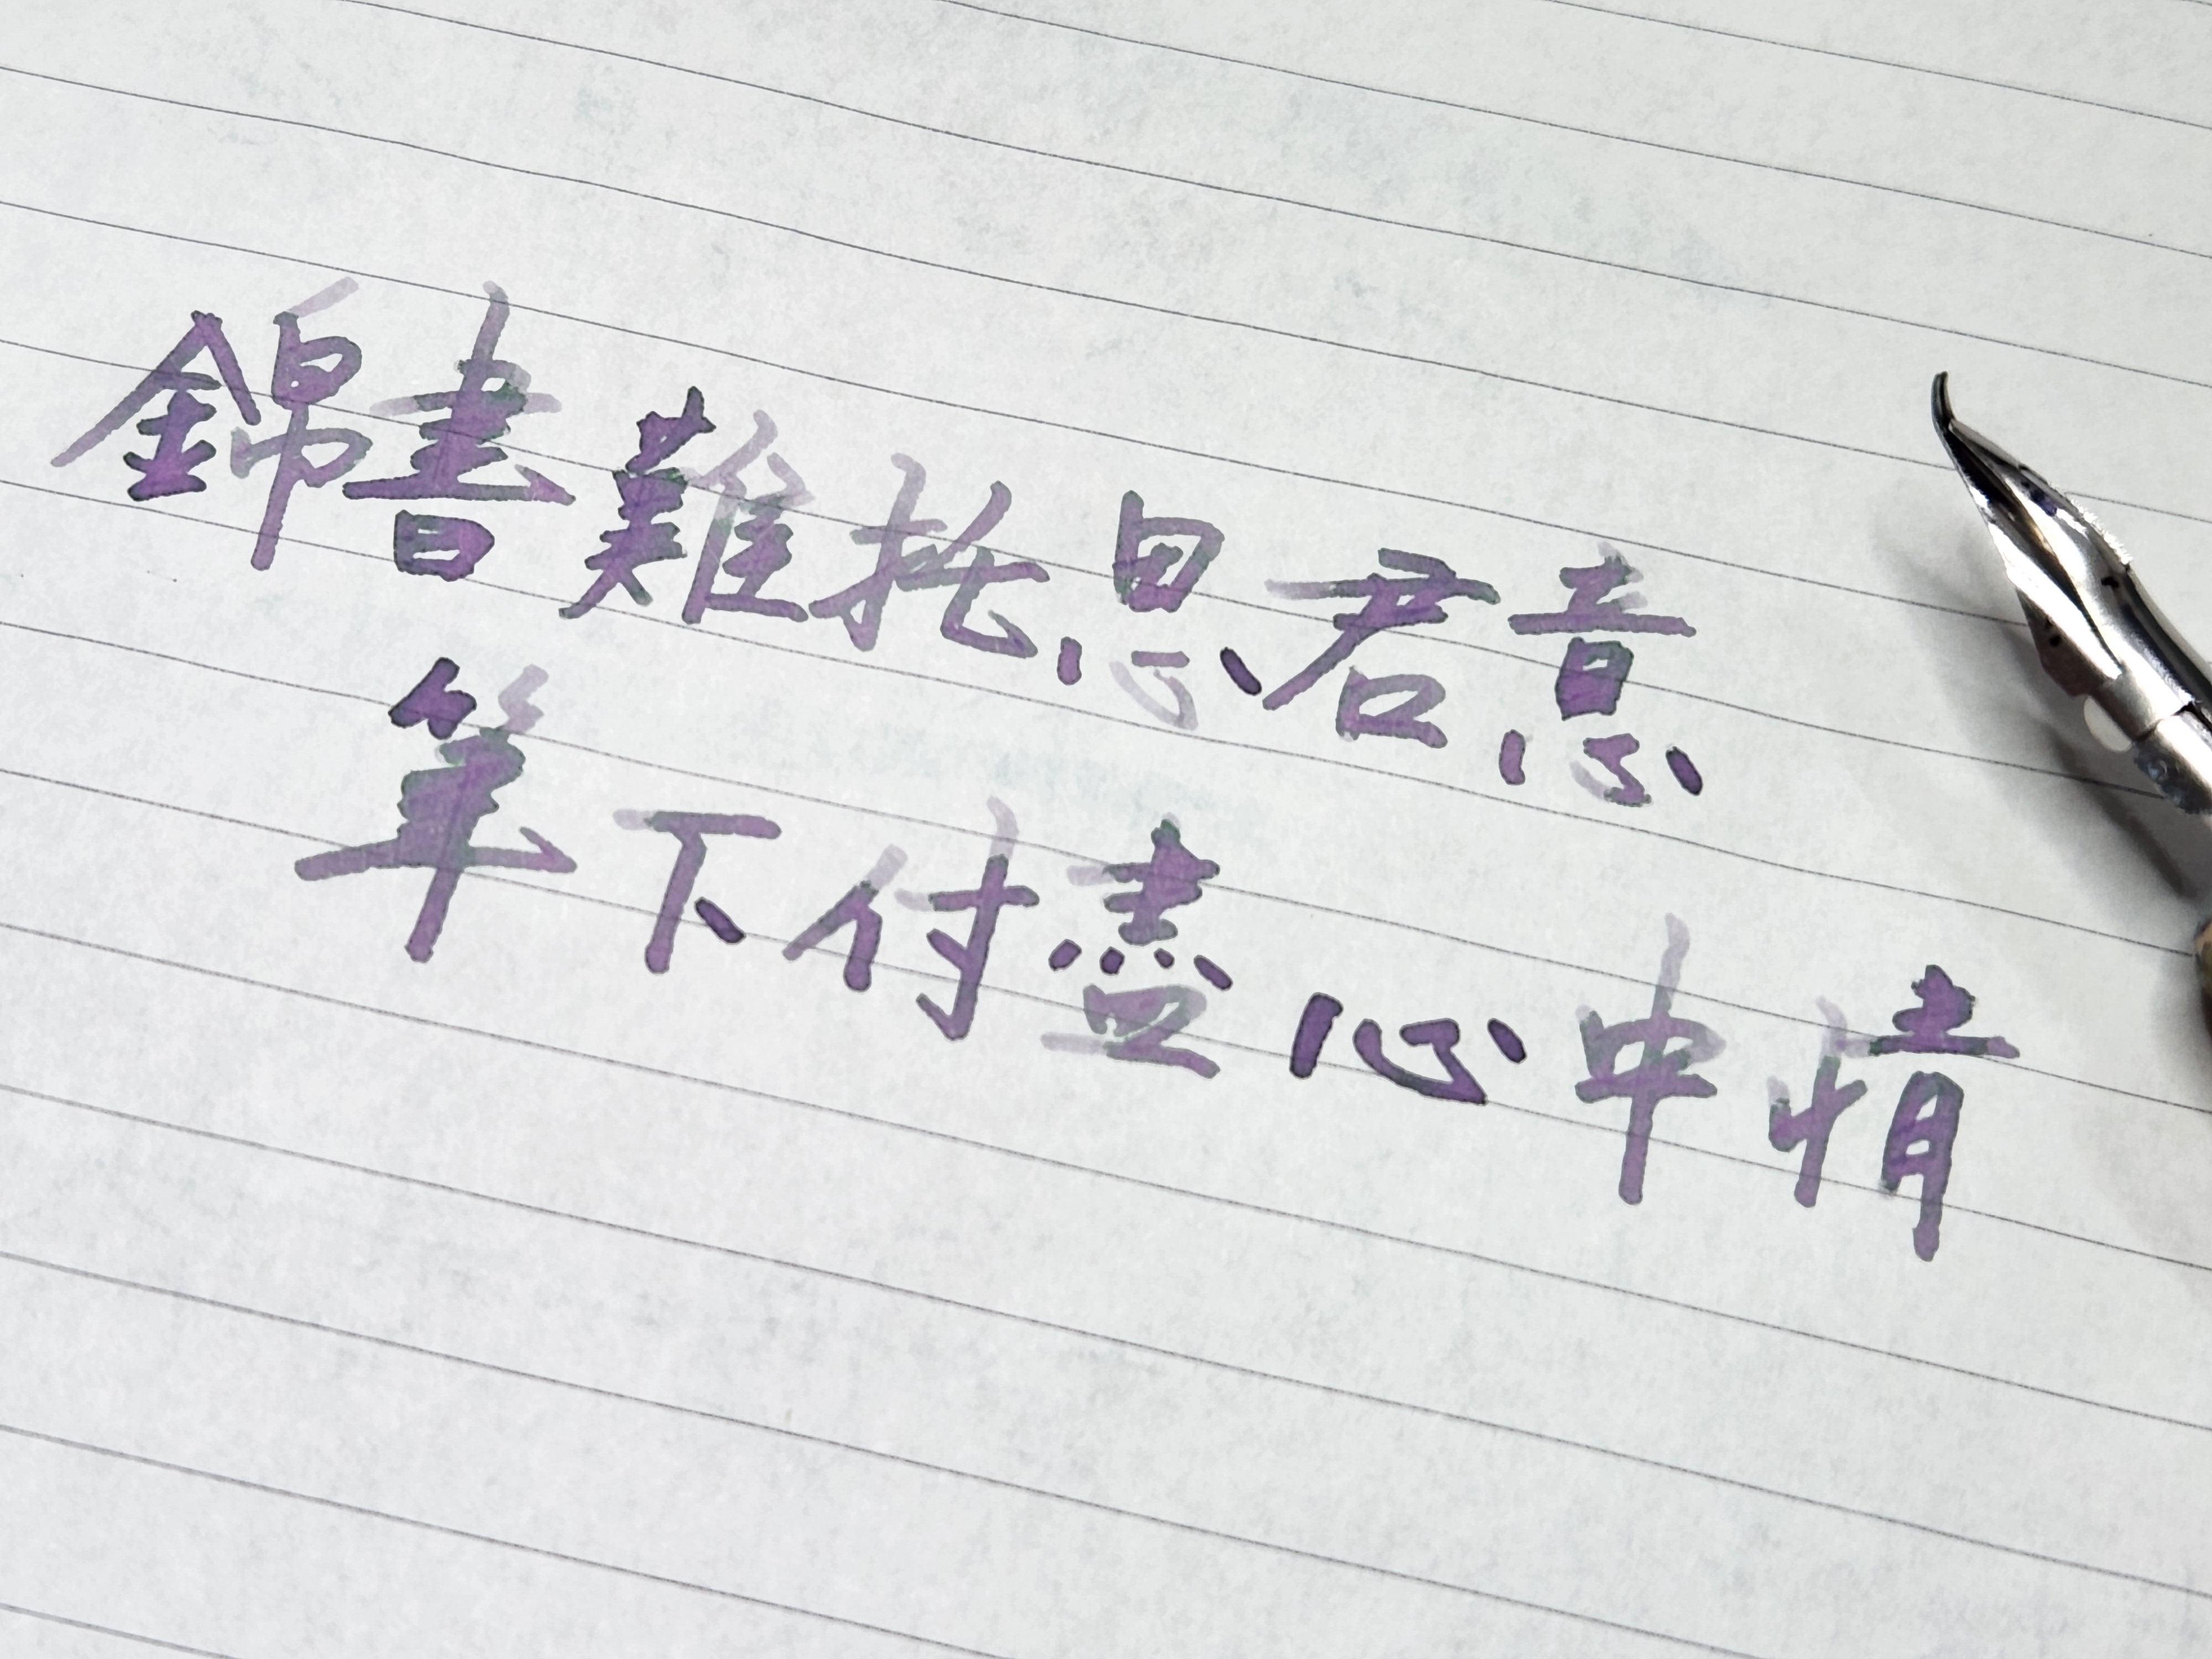 錦書難托思君意
筆下付盡心中情